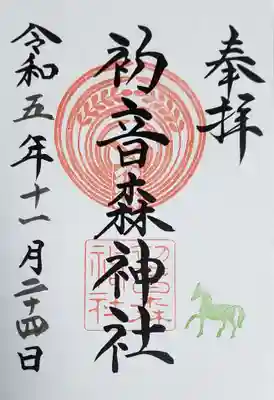 奉拝
初音森神社
初音森
神社
令和五年十一月二十四日